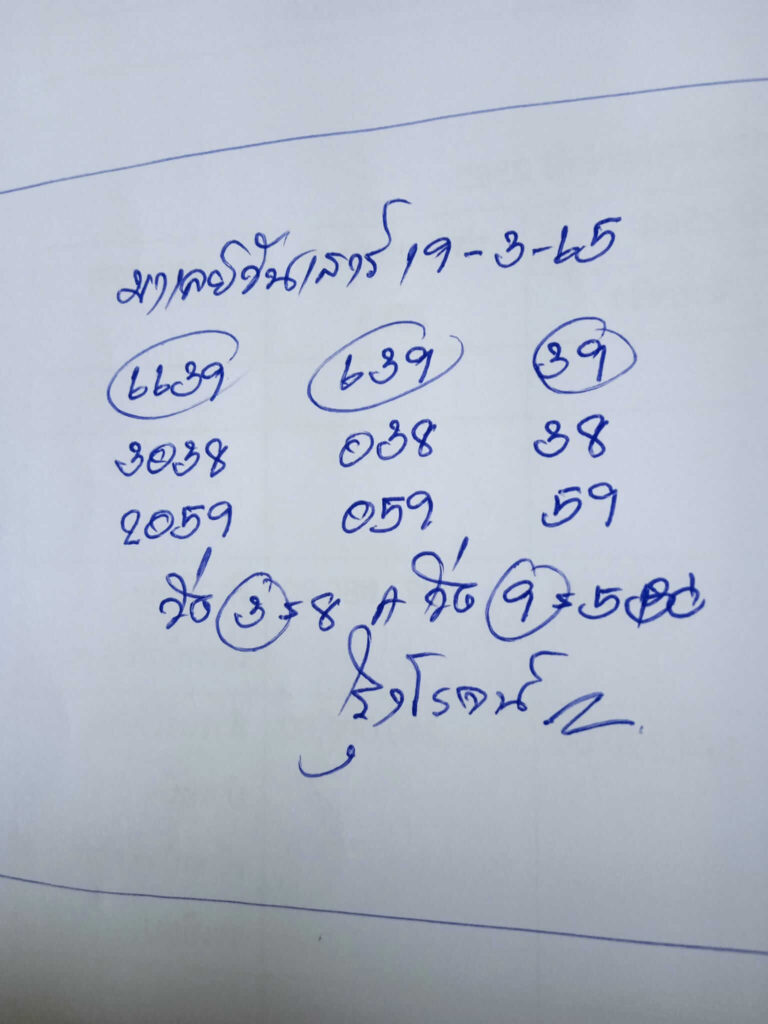 มาเลย์วันเสาร์ 19-3-65
6639 639 39
3038 038 38
2059 059 59
วิ่ง 3 = 8 A วิ่ง 9 = 5
รุ่งโรจน์